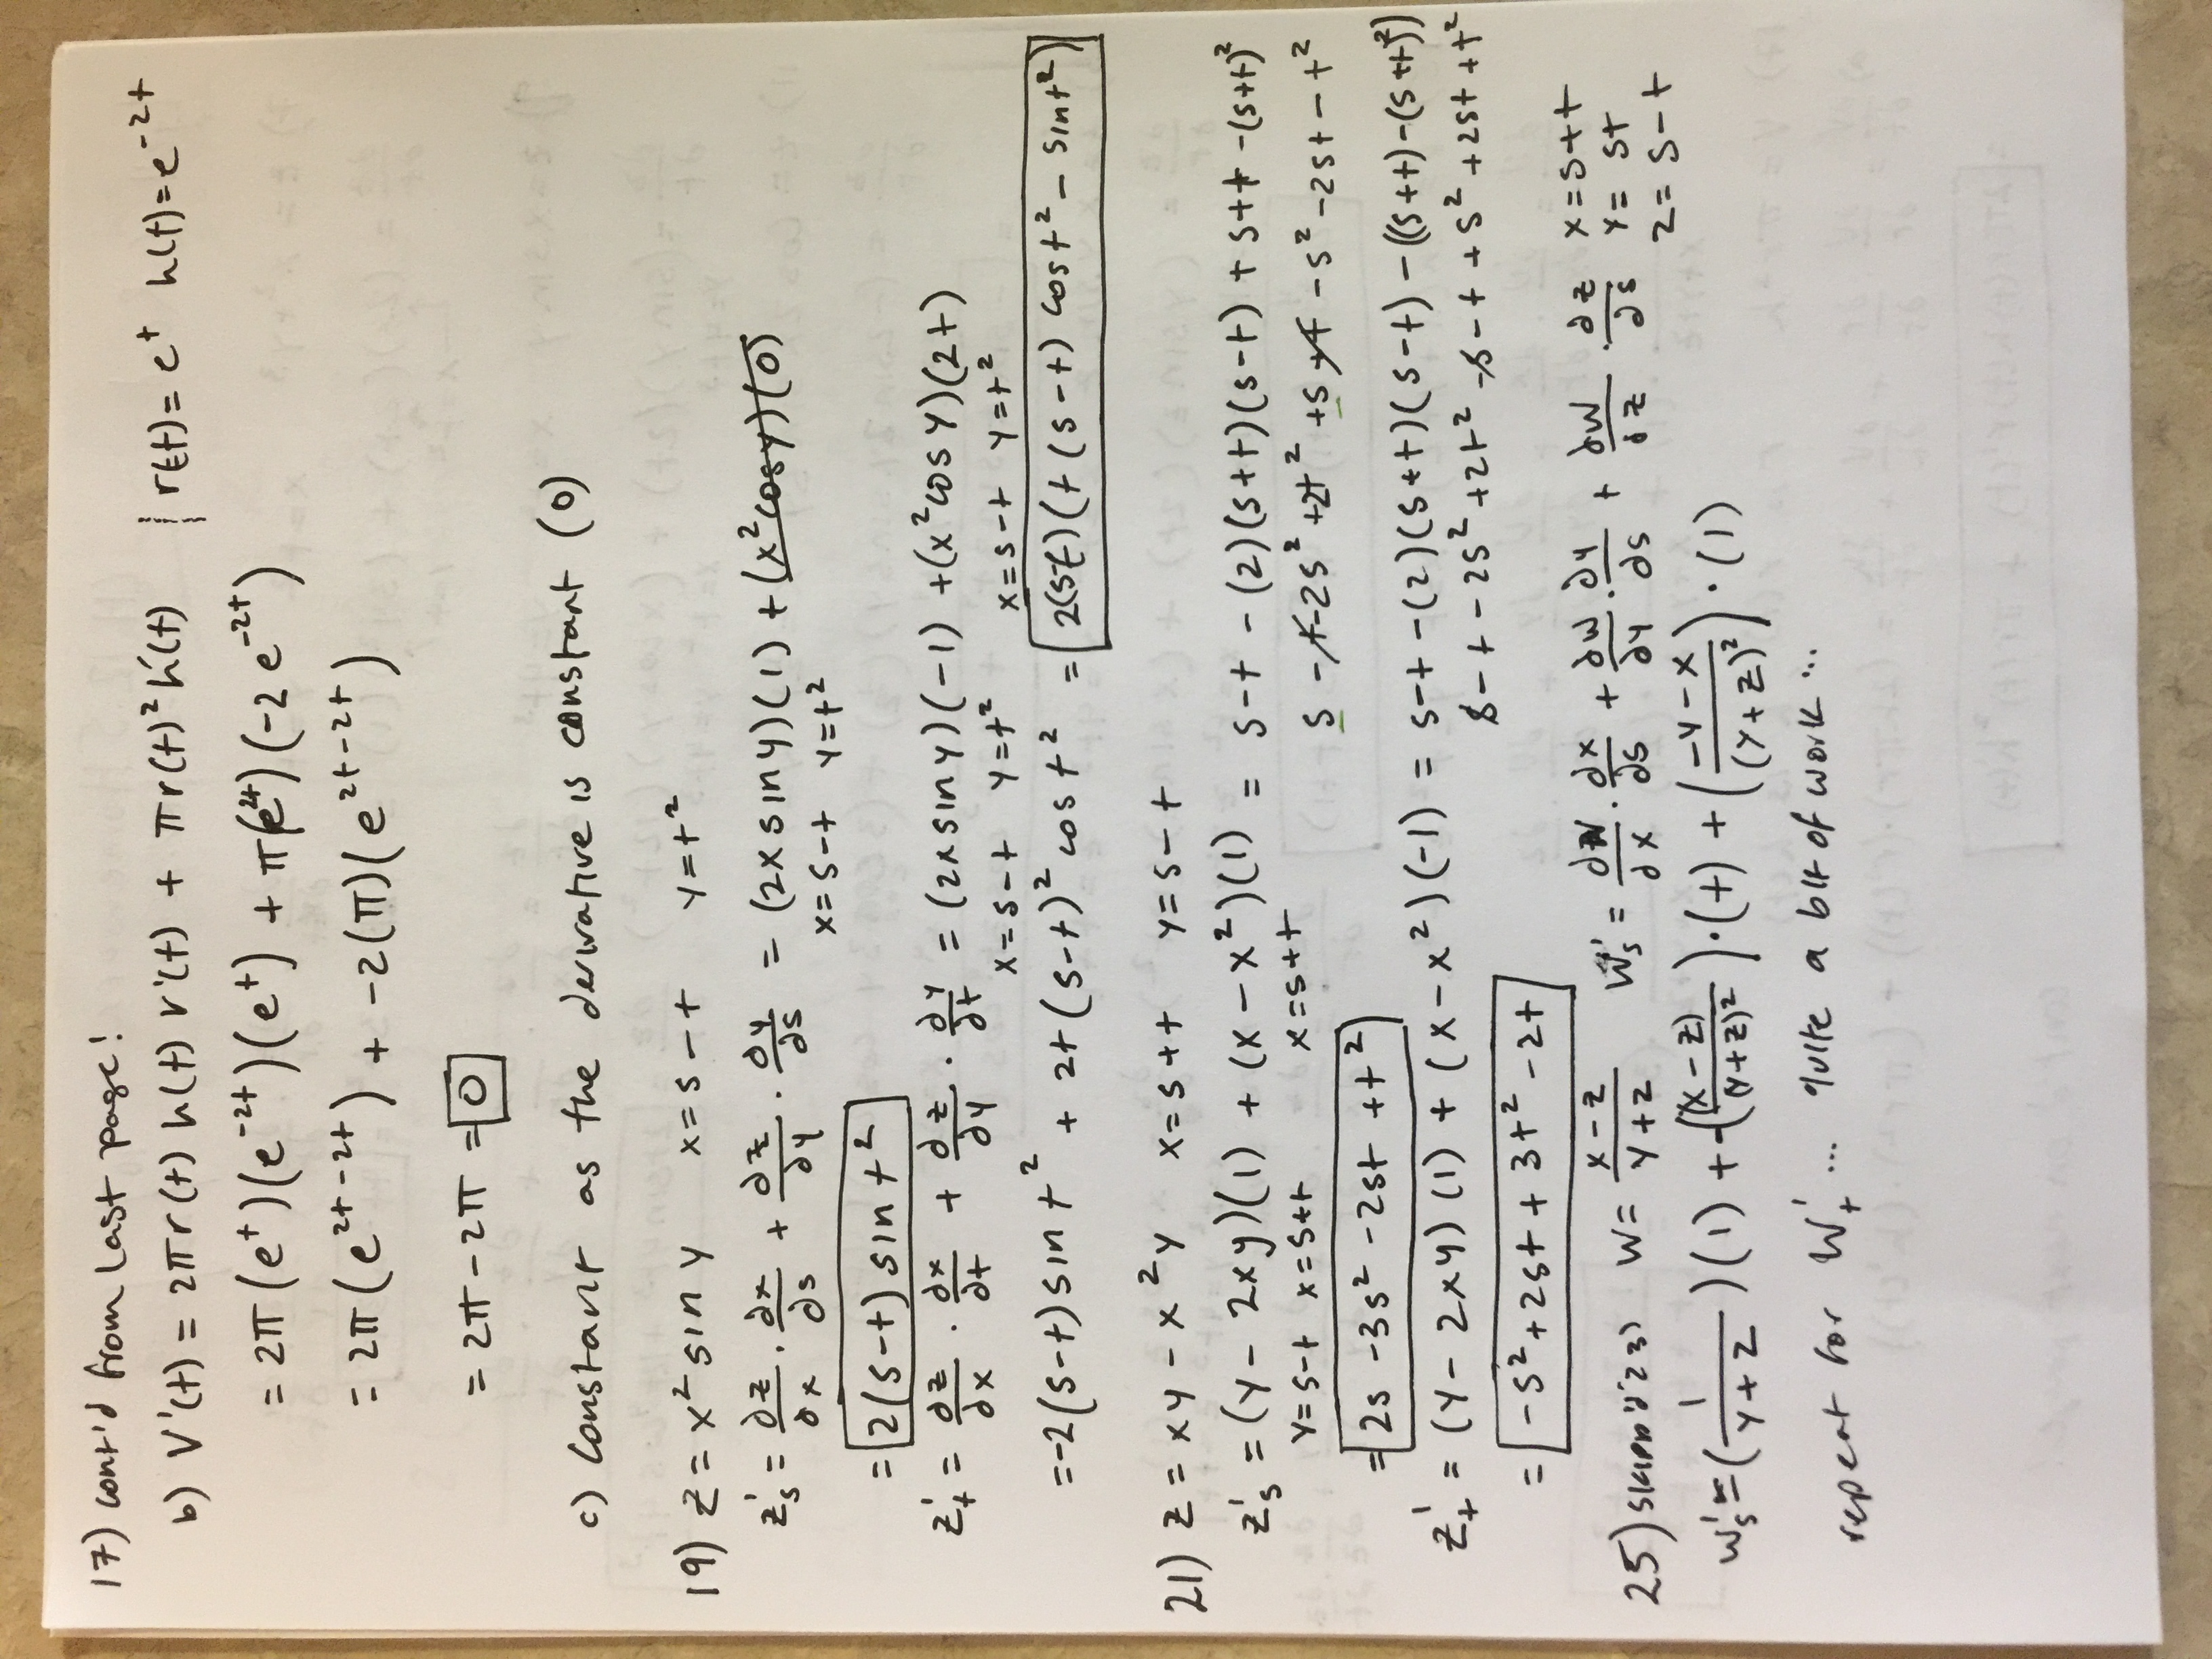 17) cont'd from last page!
b) V'(t) = 2πr(t) h(t) r'(t) + πr(t)² h'(t) | r(t) = e^t h(t) = e^-2t
= 2π(e^t)(e^-2t)(e^t) + π(e^2t)(-2e^-2t)
= 2π(e^2t-2t) + -2(π)(e^2t-2t)
= 2π - 2π = 0
c) constant as the derivative is constant (0)
19) z = x² sin y x = s - t y = t²
z's = ∂z/∂x · ∂x/∂s + ∂z/∂y · ∂y/∂s = (2x sin y)(1) + (x² cos y)(0)
x = s-t y = t²
= 2(s-t) sin t²
z't = ∂z/∂x · ∂x/∂t + ∂z/∂y · ∂y/∂t = (2x sin y)(-1) + (x² cos y)(2t)
x = s-t y = t² x = s-t y = t²
= -2(s-t) sin t² + 2t(s-t)² cos t² = 2(s-t)(t(s-t) cos t² - sin t²)
21) z = xy - x²y x = s+t y = s-t
z's = (y - 2xy)(1) + (x - x²)(1) = s-t - (2)(s+t)(s-t) + s+t - (s+t)²
y = s-t x = s+t x = s+t s - t - 2s² + 2t² + s + t - s² - 2st - t²
= 2s - 3s² - 2st + t²
z't = (y - 2xy)(1) + (x - x²)(-1) = s-t - (2)(s+t)(s-t) - ((s+t) - (s+t)²)
s - t - 2s² + 2t² - s - t + s² + 2st + t²
= -s² + 2st + 3t² - 2t
25) skipp'd 23) w = x-z/y+z w's = ∂w/∂x · ∂x/∂s + ∂w/∂y · ∂y/∂s + ∂w/∂z · ∂z/∂s x = s+t
y = st
z = s-t
w's = (1/y+z)(1) + -((x-z)/(y+z)²) · (t) + (-y-x/(y+z)²) · (1)
repeat for w't ... quite a bit of work ...